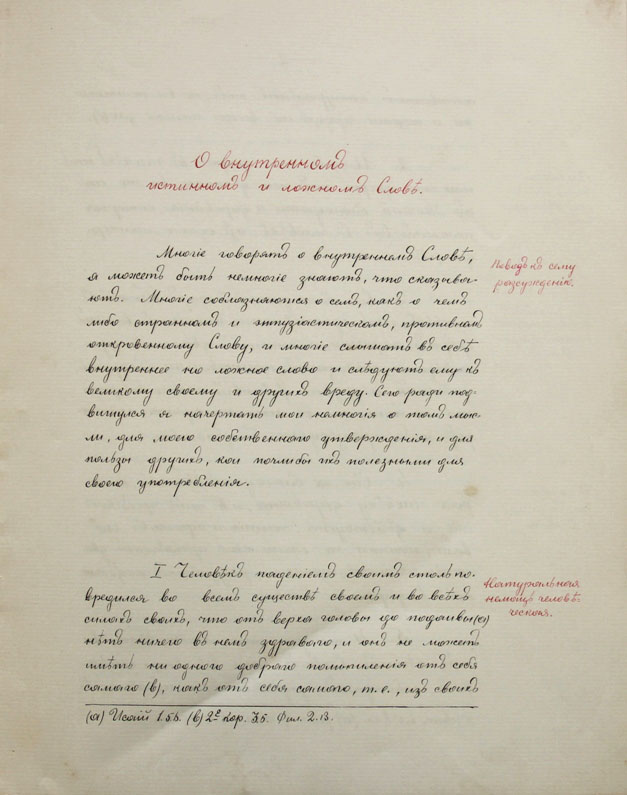 О внутренномъ
истинномъ и ложномъ Словѣ.
Многіе говорятъ о внутреннемъ Словѣ,
а можетъ быть немногіе знаютъ, что сказыва-
ютъ. Многіе соблазняются о семъ, какъ о чемъ
либо странномъ и энтузіастическомъ, противномъ
откровенному Слову, и многіе слышатъ въ себѣ
внутреннее но ложное слово и слѣдуютъ ему къ
великому своему и другихъ вреду. Сего ради под-
вигнулся я начертать мои немногія о томъ мыс-
ли, для моего собственного утвержденія, и для
пользы другихъ, кои почлибы ихъ полезными для
своего употребленія.
Поводъ къ сему
разсужденію.
I Человѣкъ паденіемъ своимъ столь по-
вредился во всемъ существѣ своемъ и во всѣхъ
силахъ своихъ, что отъ верха головы до подошвы (а)
нѣтъ ничего въ немъ здраваго, и онъ не можетъ
имѣть ни одного добраго помышленія отъ себя
самаго (в), какъ отъ себя самаго, т.е., изъ своихъ
Натуральная
немощь человѣ-
ческая.
(а) Исаіи 1.5.6. (в) 2е Кор. 3.5. Фил. 2.13.